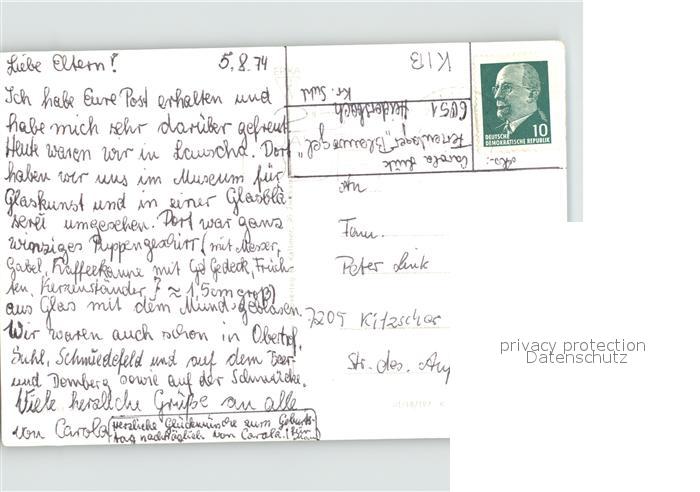 Liebe Eltern! 5.8.74
Ich habe Eure Post erhalten und
habe mich sehr darüber gefreut.
Heute waren wir in Lauscha. Dort
haben wir uns im Museum für
Glaskunst und in einer Glasblä
serei umgesehen. Dort war ganz
winziges Puppengeschirr (mit Messer,
Gabel, Kaffeekanne mit Gedeck, Früch-
ten, Kerzenständer, ≈ 1,5cm groß)
aus Glas mit dem Mund geblasen.
Wir waren auch schon in Oberhof,
Suhl, Schmiedefeld und auf dem
und Domberg sowie auf der Schmücke.
Viele herzliche Grüße an alle
von Carola
Herzliche Glückwünsche zum Geburts-
tag nachträglich von Carola!
KIB
Abs.:
Carola Link
Ferienlager "Blauvogel"
6051 Heidersbach
Kr. Suhl
DEUTSCHE
DEMOKRATISCHE REPUBLIK
10
An
Fam.
Peter Link
7209 Kitzscher
Str. des. Auf
privacy protection
Datenschutz